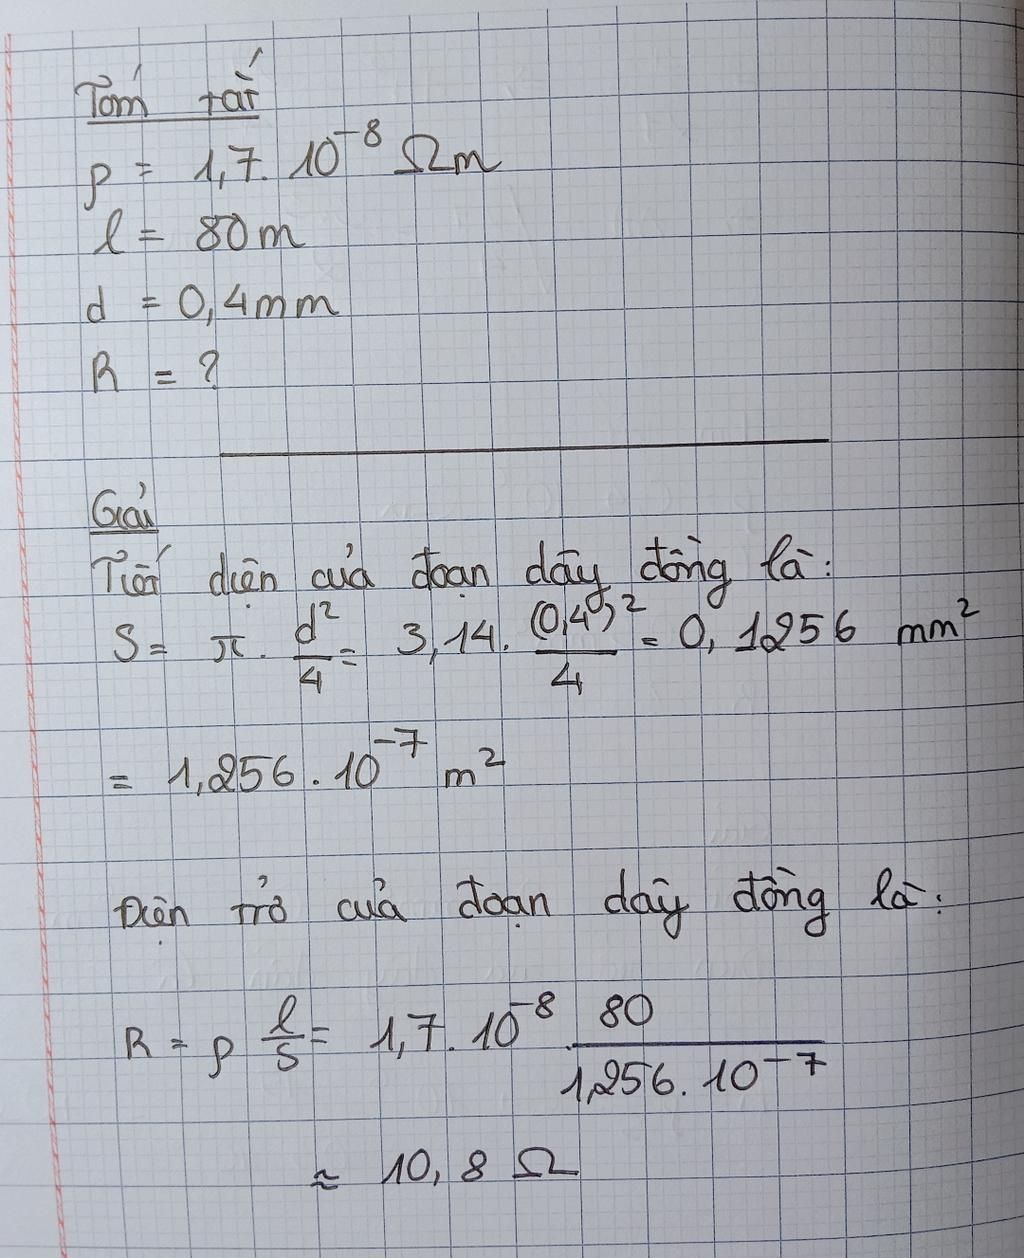 Tóm tắt
ρ = 1,7. 10⁻⁸ Ωm
l = 80m
d = 0,4mm
R = ?
Giải
Tiết diện của đoạn dây đồng là:
S = π. d²/4 = 3,14. (0,4)²/4 = 0,1256 mm²
= 1,256. 10⁻⁷ m²
Điện trở của đoạn dây đồng là:
R = ρ l/S = 1,7. 10⁻⁸. 80/1,256. 10⁻⁷
≈ 10,8 Ω